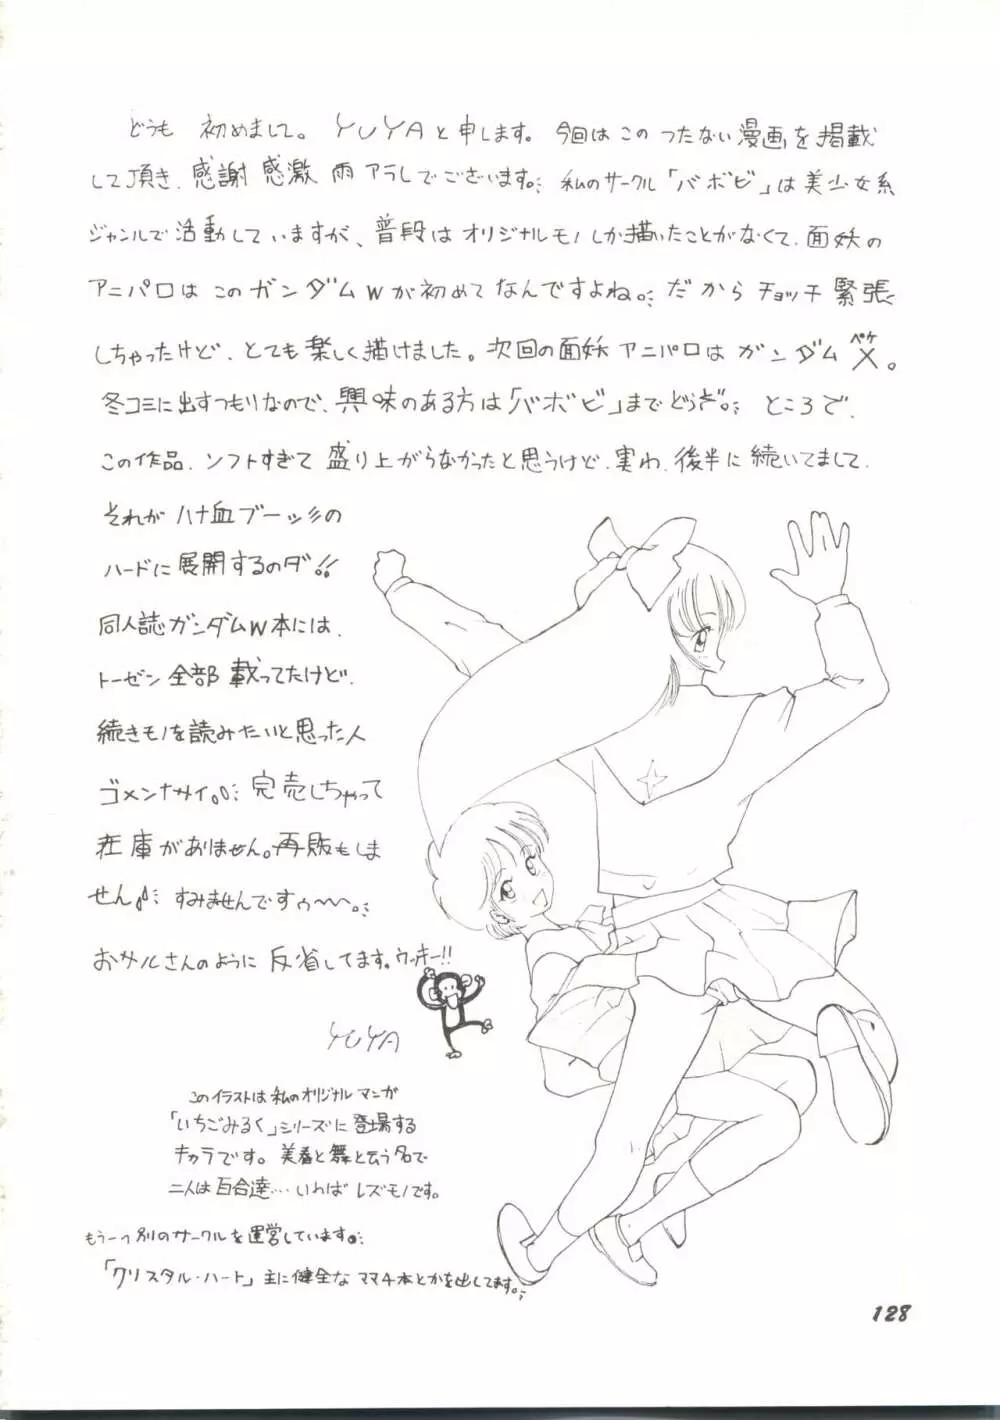 どうも 初めまして。 YUYAと申します。 今回はこのつたない漫画を掲載
して頂き、感謝 感激 雨アラレでございます。 私のサークル「バボビ」は美少女系
ジャンルで活動していますが、普段はオリジナルモノしか描いたことがなくて、面妖の
アニパロはこのガンダムWが初めてなんですよね。だからチョッチ緊張
しちゃったけど、とても楽しく描けました。次回の面妖アニパロはガンダムX。
ペケ
冬コミに出すつもりなので、興味のある方は「バボビ」までどうぞ。 ところで、
この作品、ソフトすぎて盛り上がらなかったと思うけど、実わ、後半に続いてまして、
それがハナ血ブーッの
ハードに展開するのダ!!
同人誌ガンダムW本には、
トーゼン全部載ってたけど、
続きモノを読みたいと思った人
ゴメンナサイ。 完売しちゃって
在庫がありません。再販もしま
せん。 すみませんですゥ〜〜。
おサルさんのように反省してます。ウッキー!!
YUYA
このイラストは私のオリジナルマンガ
「いちごみるく」シリーズに登場する
キャラです。美着と舞と云う名で
二人は百合達…いわばレズモノです。
もう一つ別のサークルを運営しています。
「クリスタル・ハート」主に健全なママ4本とかを出してます。
128